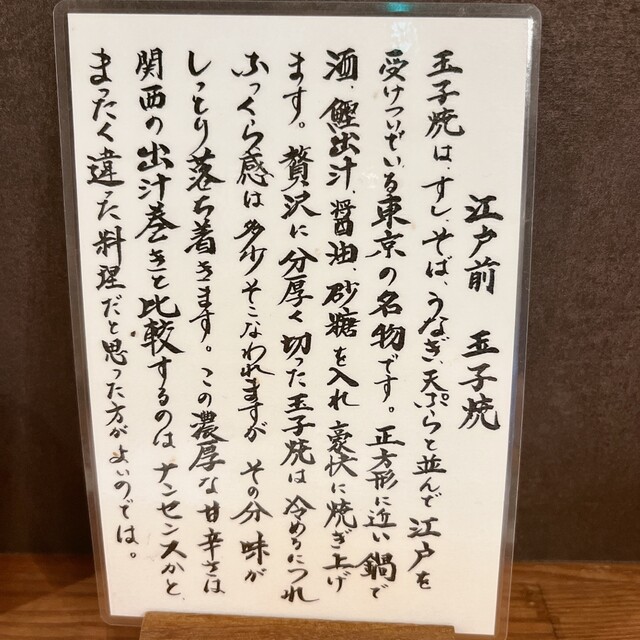 江戸前 玉子焼
玉子焼は、すし、そば、うなぎ、天ぷらと並んで江戸を
受けついでいる東京の名物です。正方形に近い鍋で
酒、鰹出汁、醤油、砂糖を入れ豪快に焼き上げ
ます。贅沢に分厚く切った玉子焼は冷めるにつれ
ふっくら感は多少そこなわれますが その分 味が
しっとり落ち着きます。この濃厚な甘辛さは
関西の出汁巻きと比較するのは ナンセンスかと、
まったく違った料理だと思った方がよいのでは。